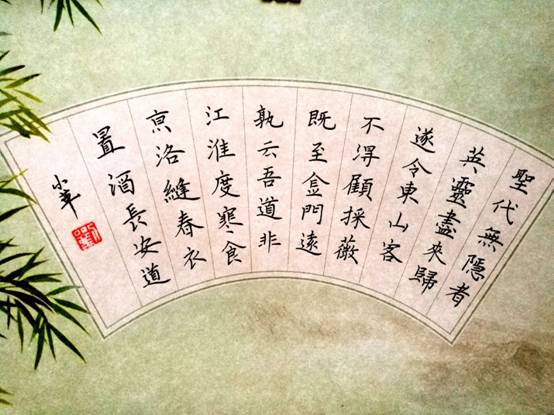 聖代無隱者
英靈盡來歸
遂令東山客
不得顧採薇
既至金門遠
孰云吾道非
江淮度寒食
亰洛縫春衣
置酒長安道